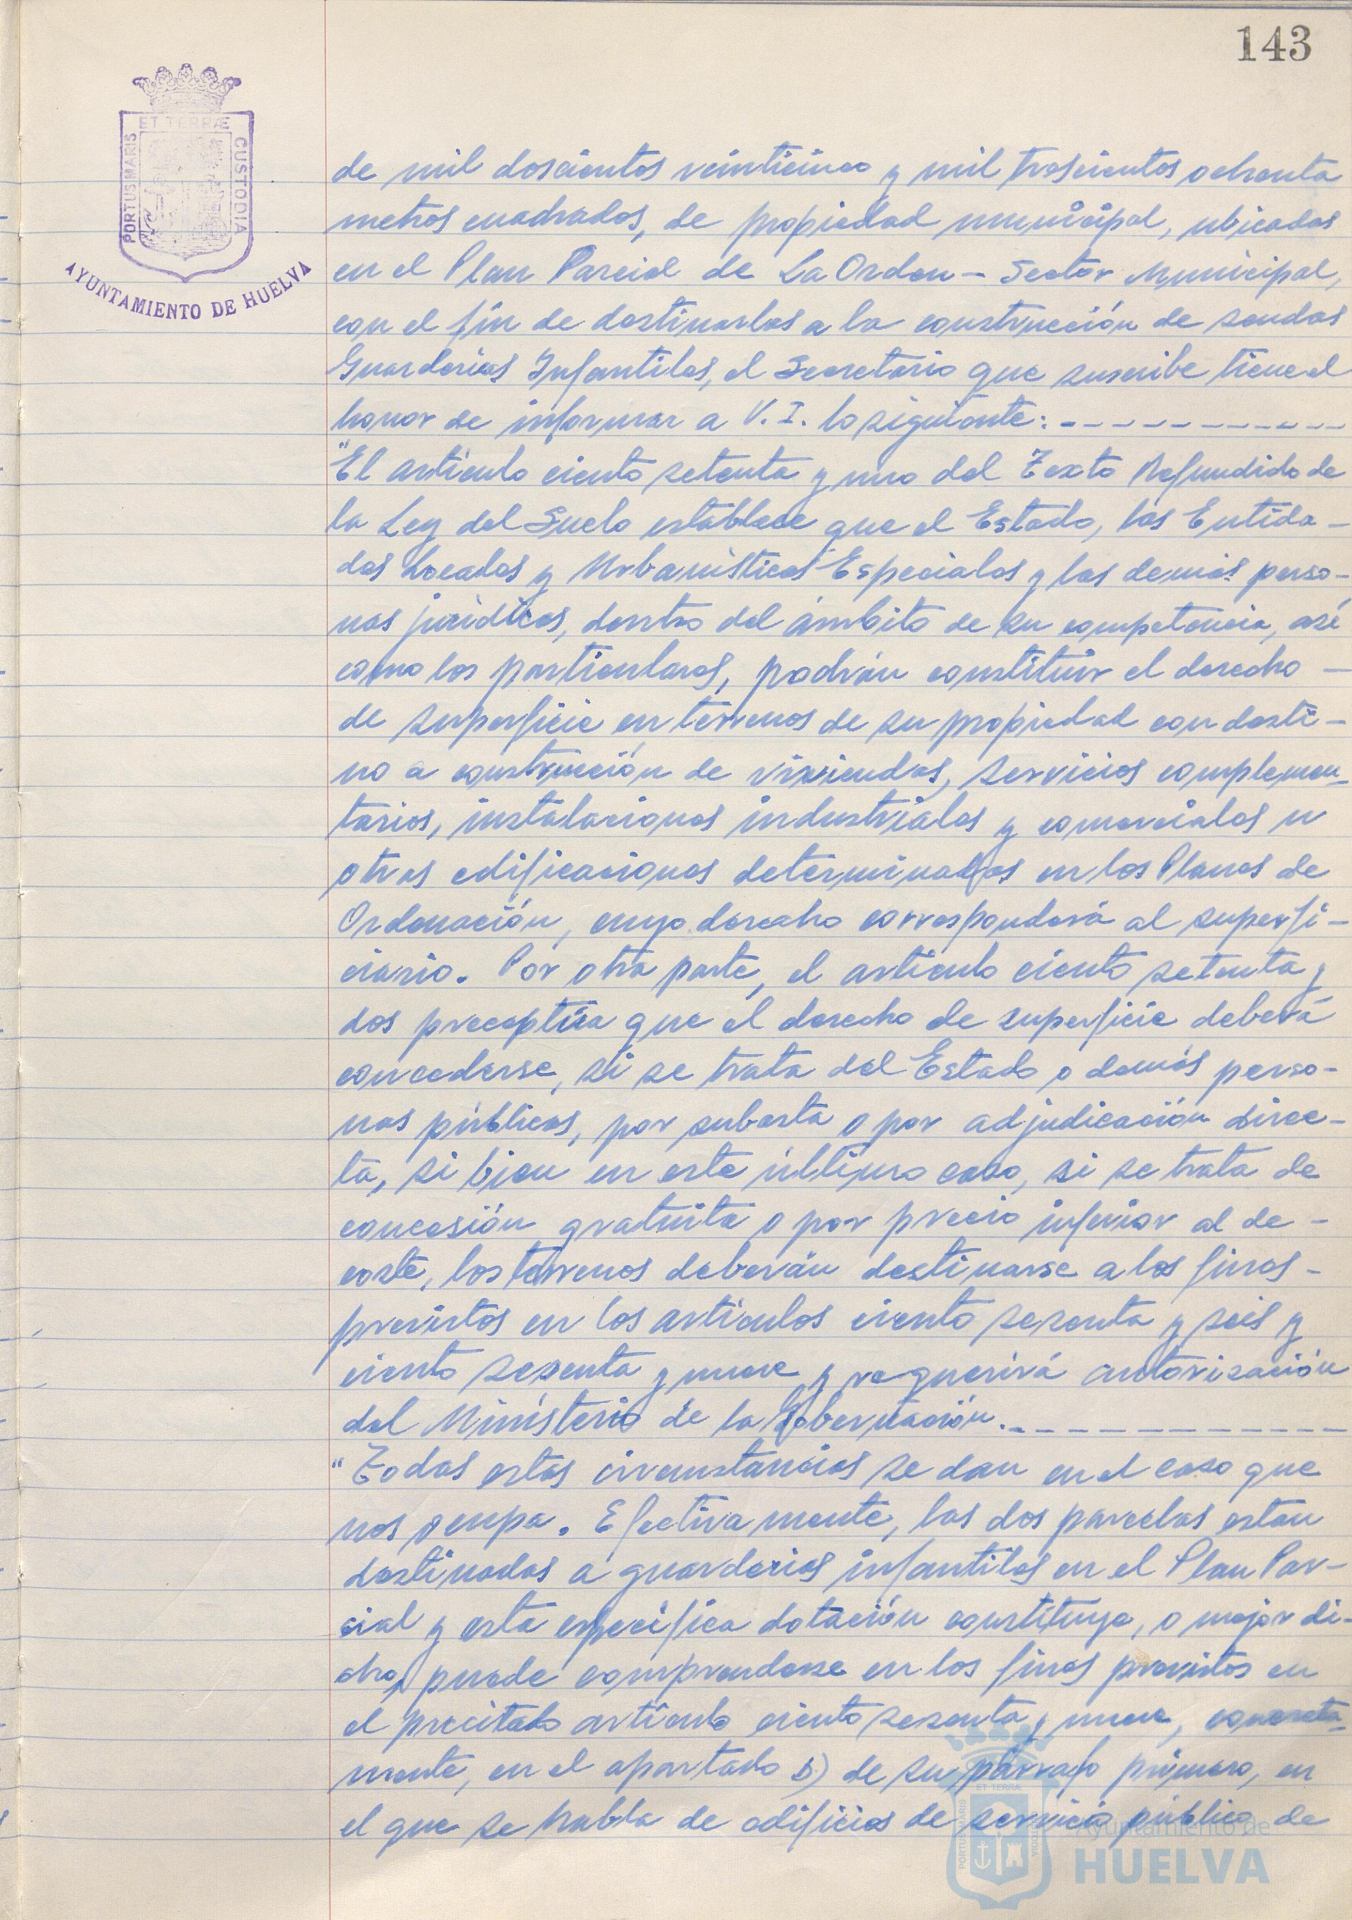 143
ET TERRÆ
PORTUS MARIS
CUSTODIA
AYUNTAMIENTO DE HUELVA
de mil doscientos veinticinco y mil trescientos ochenta
metros cuadrados, de propiedad municipal, ubicadas
en el Plan Parcial de La Orden - Sector Municipal,
con el fin de destinarlas a la construcción de sendas
Guarderías Infantiles, el Secretario que suscribe tiene el
honor de informar a V. I. lo siguiente:
"El artículo ciento setenta y uno del Texto Refundido de
la Ley del Suelo establece que el Estado, las Entida-
des Locales y Urbanísticas Especiales y las demás perso-
nas jurídicas, dentro del ámbito de su competencia, así
como los particulares, podrán constituir el derecho -
de superficie en terrenos de su propiedad con desti-
no a construcción de viviendas, servicios complemen-
tarios, instalaciones industriales y comerciales u
otras edificaciones determinadas en los Planes de
Ordenación, cuyo derecho corresponderá al superfi-
ciario. Por otra parte, el artículo ciento setenta y
dos preceptúa que el derecho de superficie deberá
concederse, si se trata del Estado o demás perso-
nas públicas, por subasta o por adjudicación direc-
ta, si bien en este último caso, si se trata de
concesión gratuita o por precio inferior al de -
coste, los terrenos deberán destinarse a los fines -
previstos en los artículos ciento sesenta y seis y
ciento sesenta y nueve y requerirá autorización
del Ministerio de la Gobernación.
"Todas estas circunstancias se dan en el caso que
nos ocupa. Efectivamente, las dos parcelas estan
destinadas a guarderías infantiles en el Plan Par-
cial y esta específica dotación constituye, o mejor di-
cho, puede comprenderse en los fines previstos en
el precitado artículo ciento sesenta y nueve, concreta-
mente, en el apartado b) de su párrafo primero, en
el que se habla de edificios de servicio público de
ET TERRÆ
PORTUS MARIS
CUSTODIA
Ayuntamiento de
HUELVA